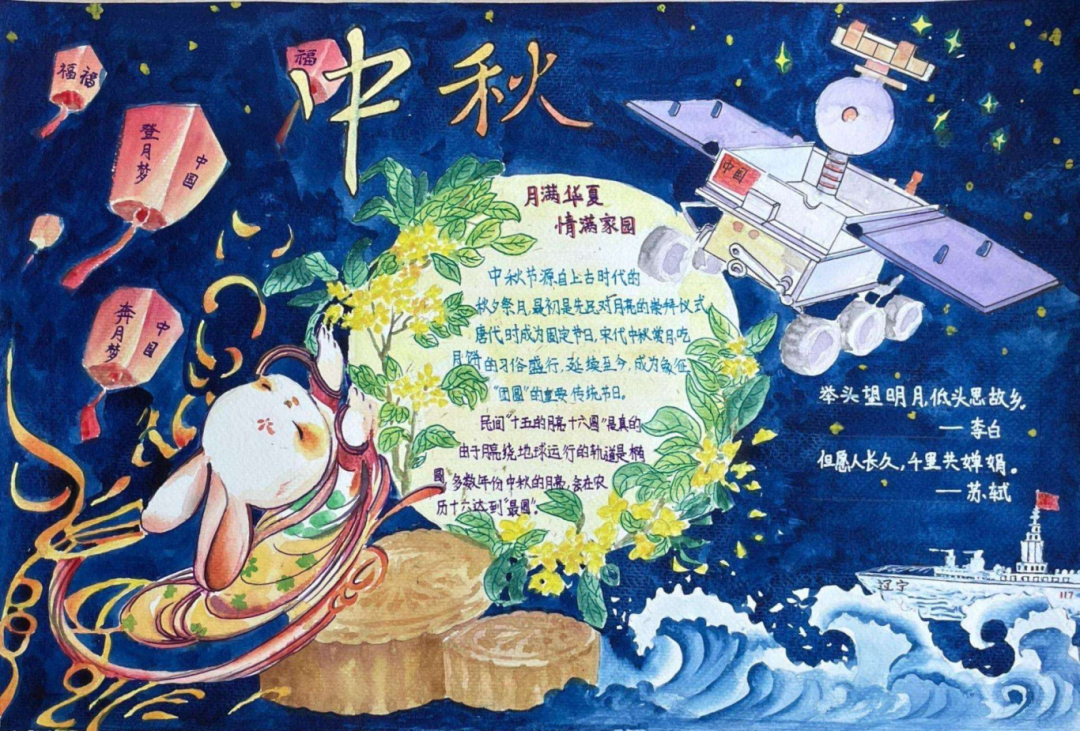 中秋
福
福
福
登月梦
中国
奔月梦
中国
中国
月满华夏
情满家园
中秋节源自上古时代的
秋夕祭月,最初是先民对月亮的崇拜仪式
唐代时成为固定节日,宋代中秋赏月、吃
月饼的习俗盛行,延续至今,成为象征
“团圆”的重要传统节日。
民间“十五的月亮十六圆”是真的
由于月亮绕地球运行的轨道是椭
圆,多数年份中秋的月亮,会在农
历十六达到“最圆”。
举头望明月,低头思故乡。
— 李白
但愿人长久,千里共婵娟。
— 苏轼
辽宁
117